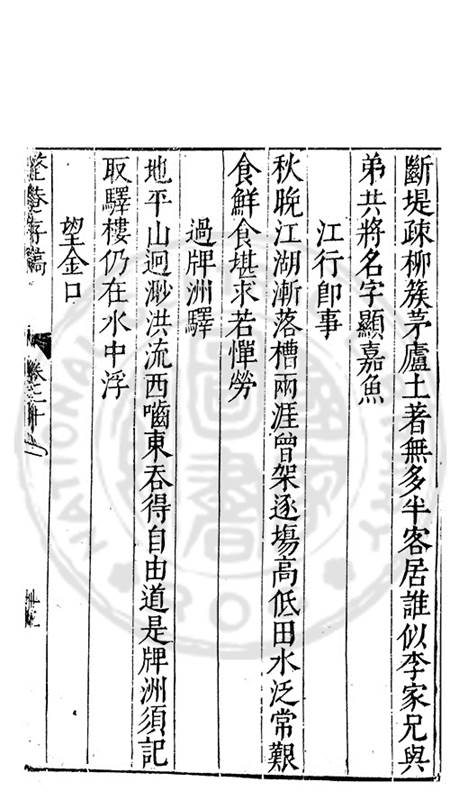 斷堤疎柳簇茅廬土著無多半客居誰似李家兄與
弟共將名字顯嘉魚
江行卽事
秋晚江湖漸落槽兩涯曾架逐塲高低田水泛常艱
食鮮食堪求若憚勞
過牌洲驛
地平山迥渺洪流西嚙東吞得自由道是牌洲須記
取驛樓仍在水中浮
望金口
存稿
卷之二十